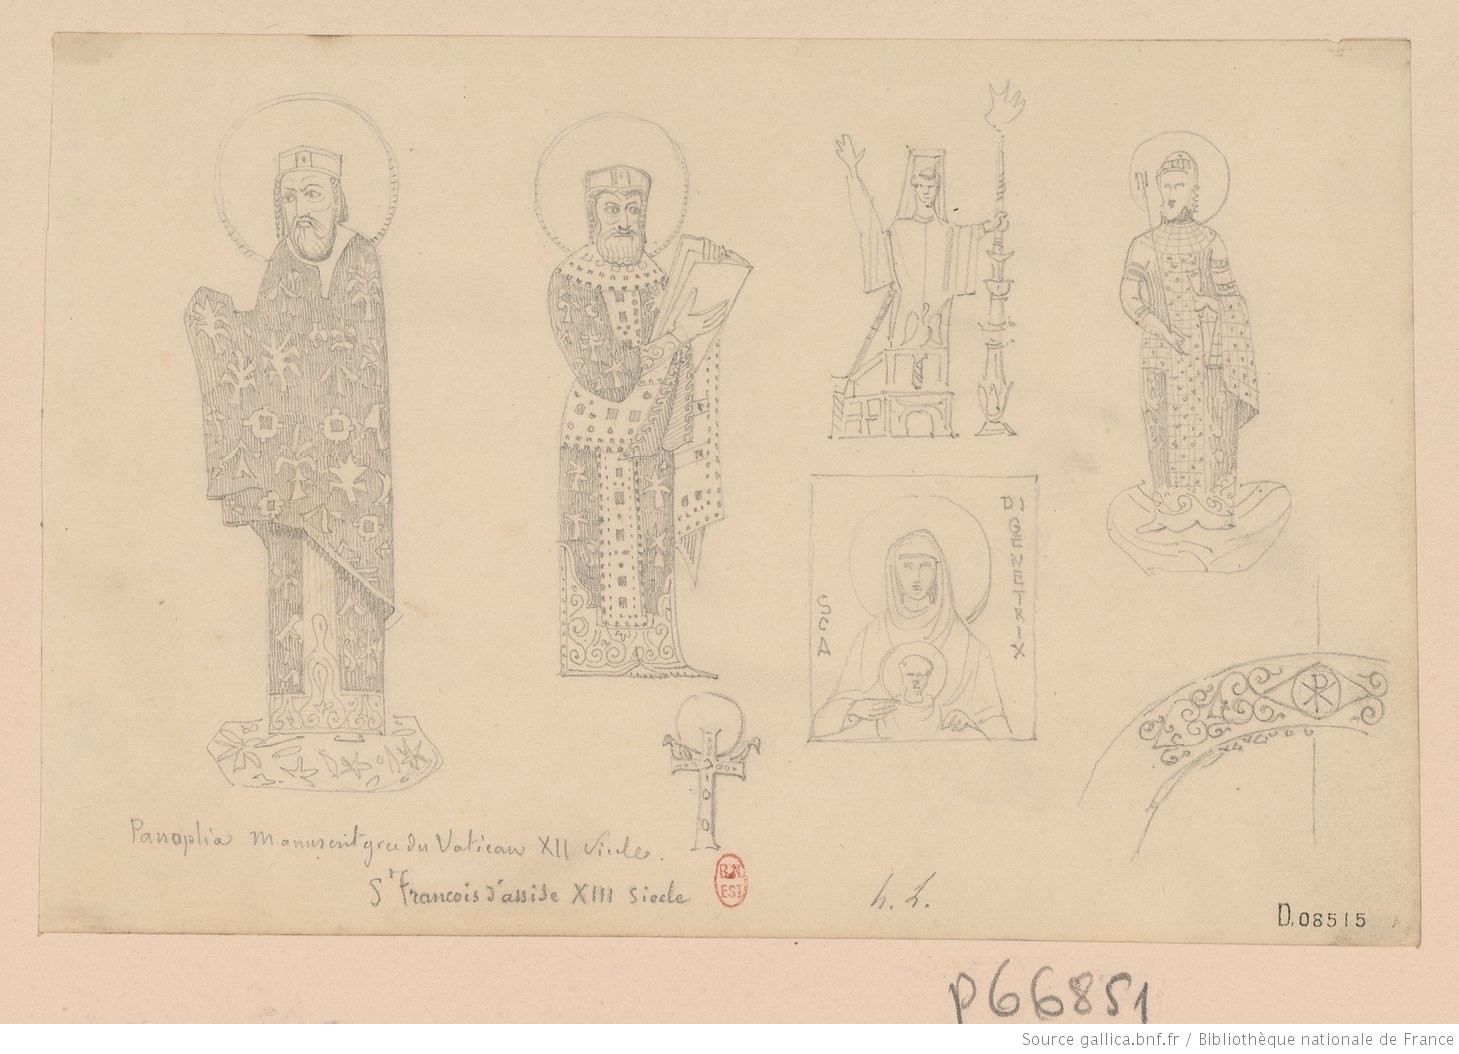 SCA
DI GENETRIX
Panoplia manuscrit grec du Vatican XII siecle.
St Francois d'assise XIII siecle
B.N.
EST.
h. L.
D.08515
P66851
Source gallica.bnf.fr / Bibliothèque nationale de France